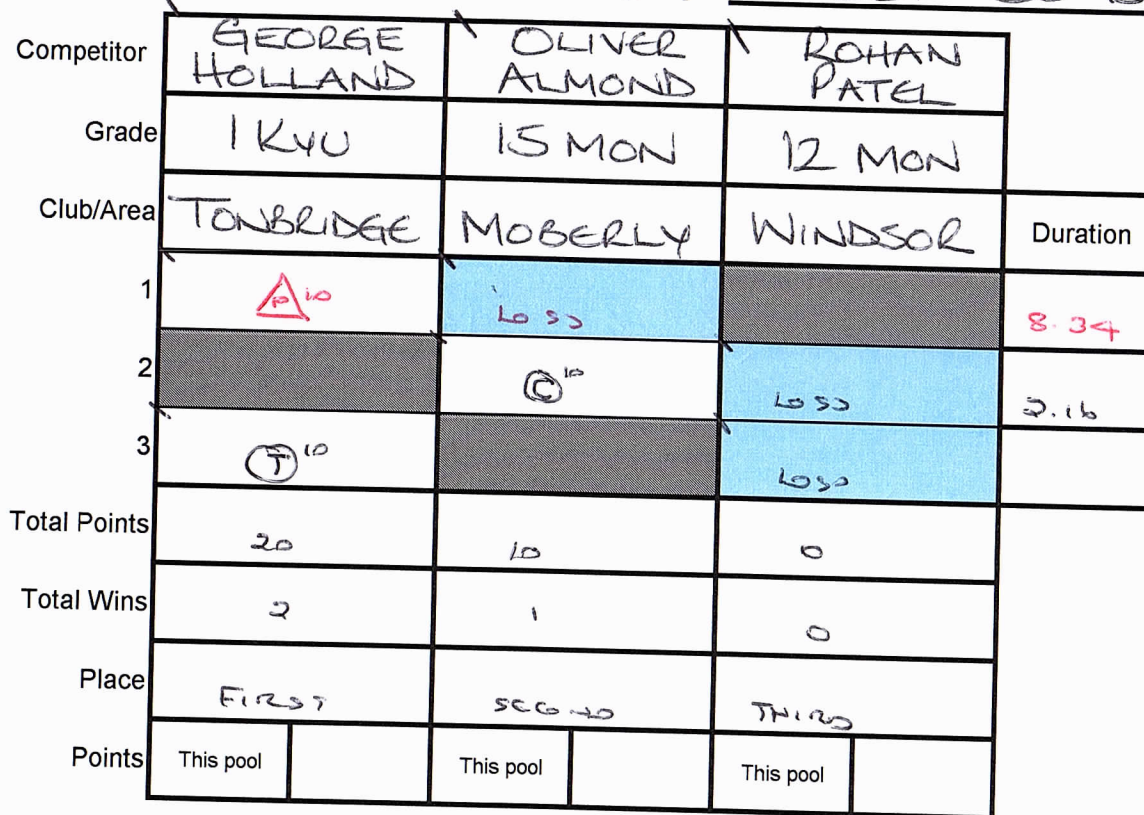 Competitor GEORGE HOLLAND OLIVER ALMOND ROHAN PATEL
Grade 1 KYU 15 MON 12 MON
Club/Area TONBRIDGE MOBERLY WINDSOR Duration
1 P 10 Loss 8.34
2 C 10 Loss 2.16
3 T 10 Loss
Total Points 20 10 0
Total Wins 2 1 0
Place FIRST SECOND THIRD
Points This pool This pool This pool